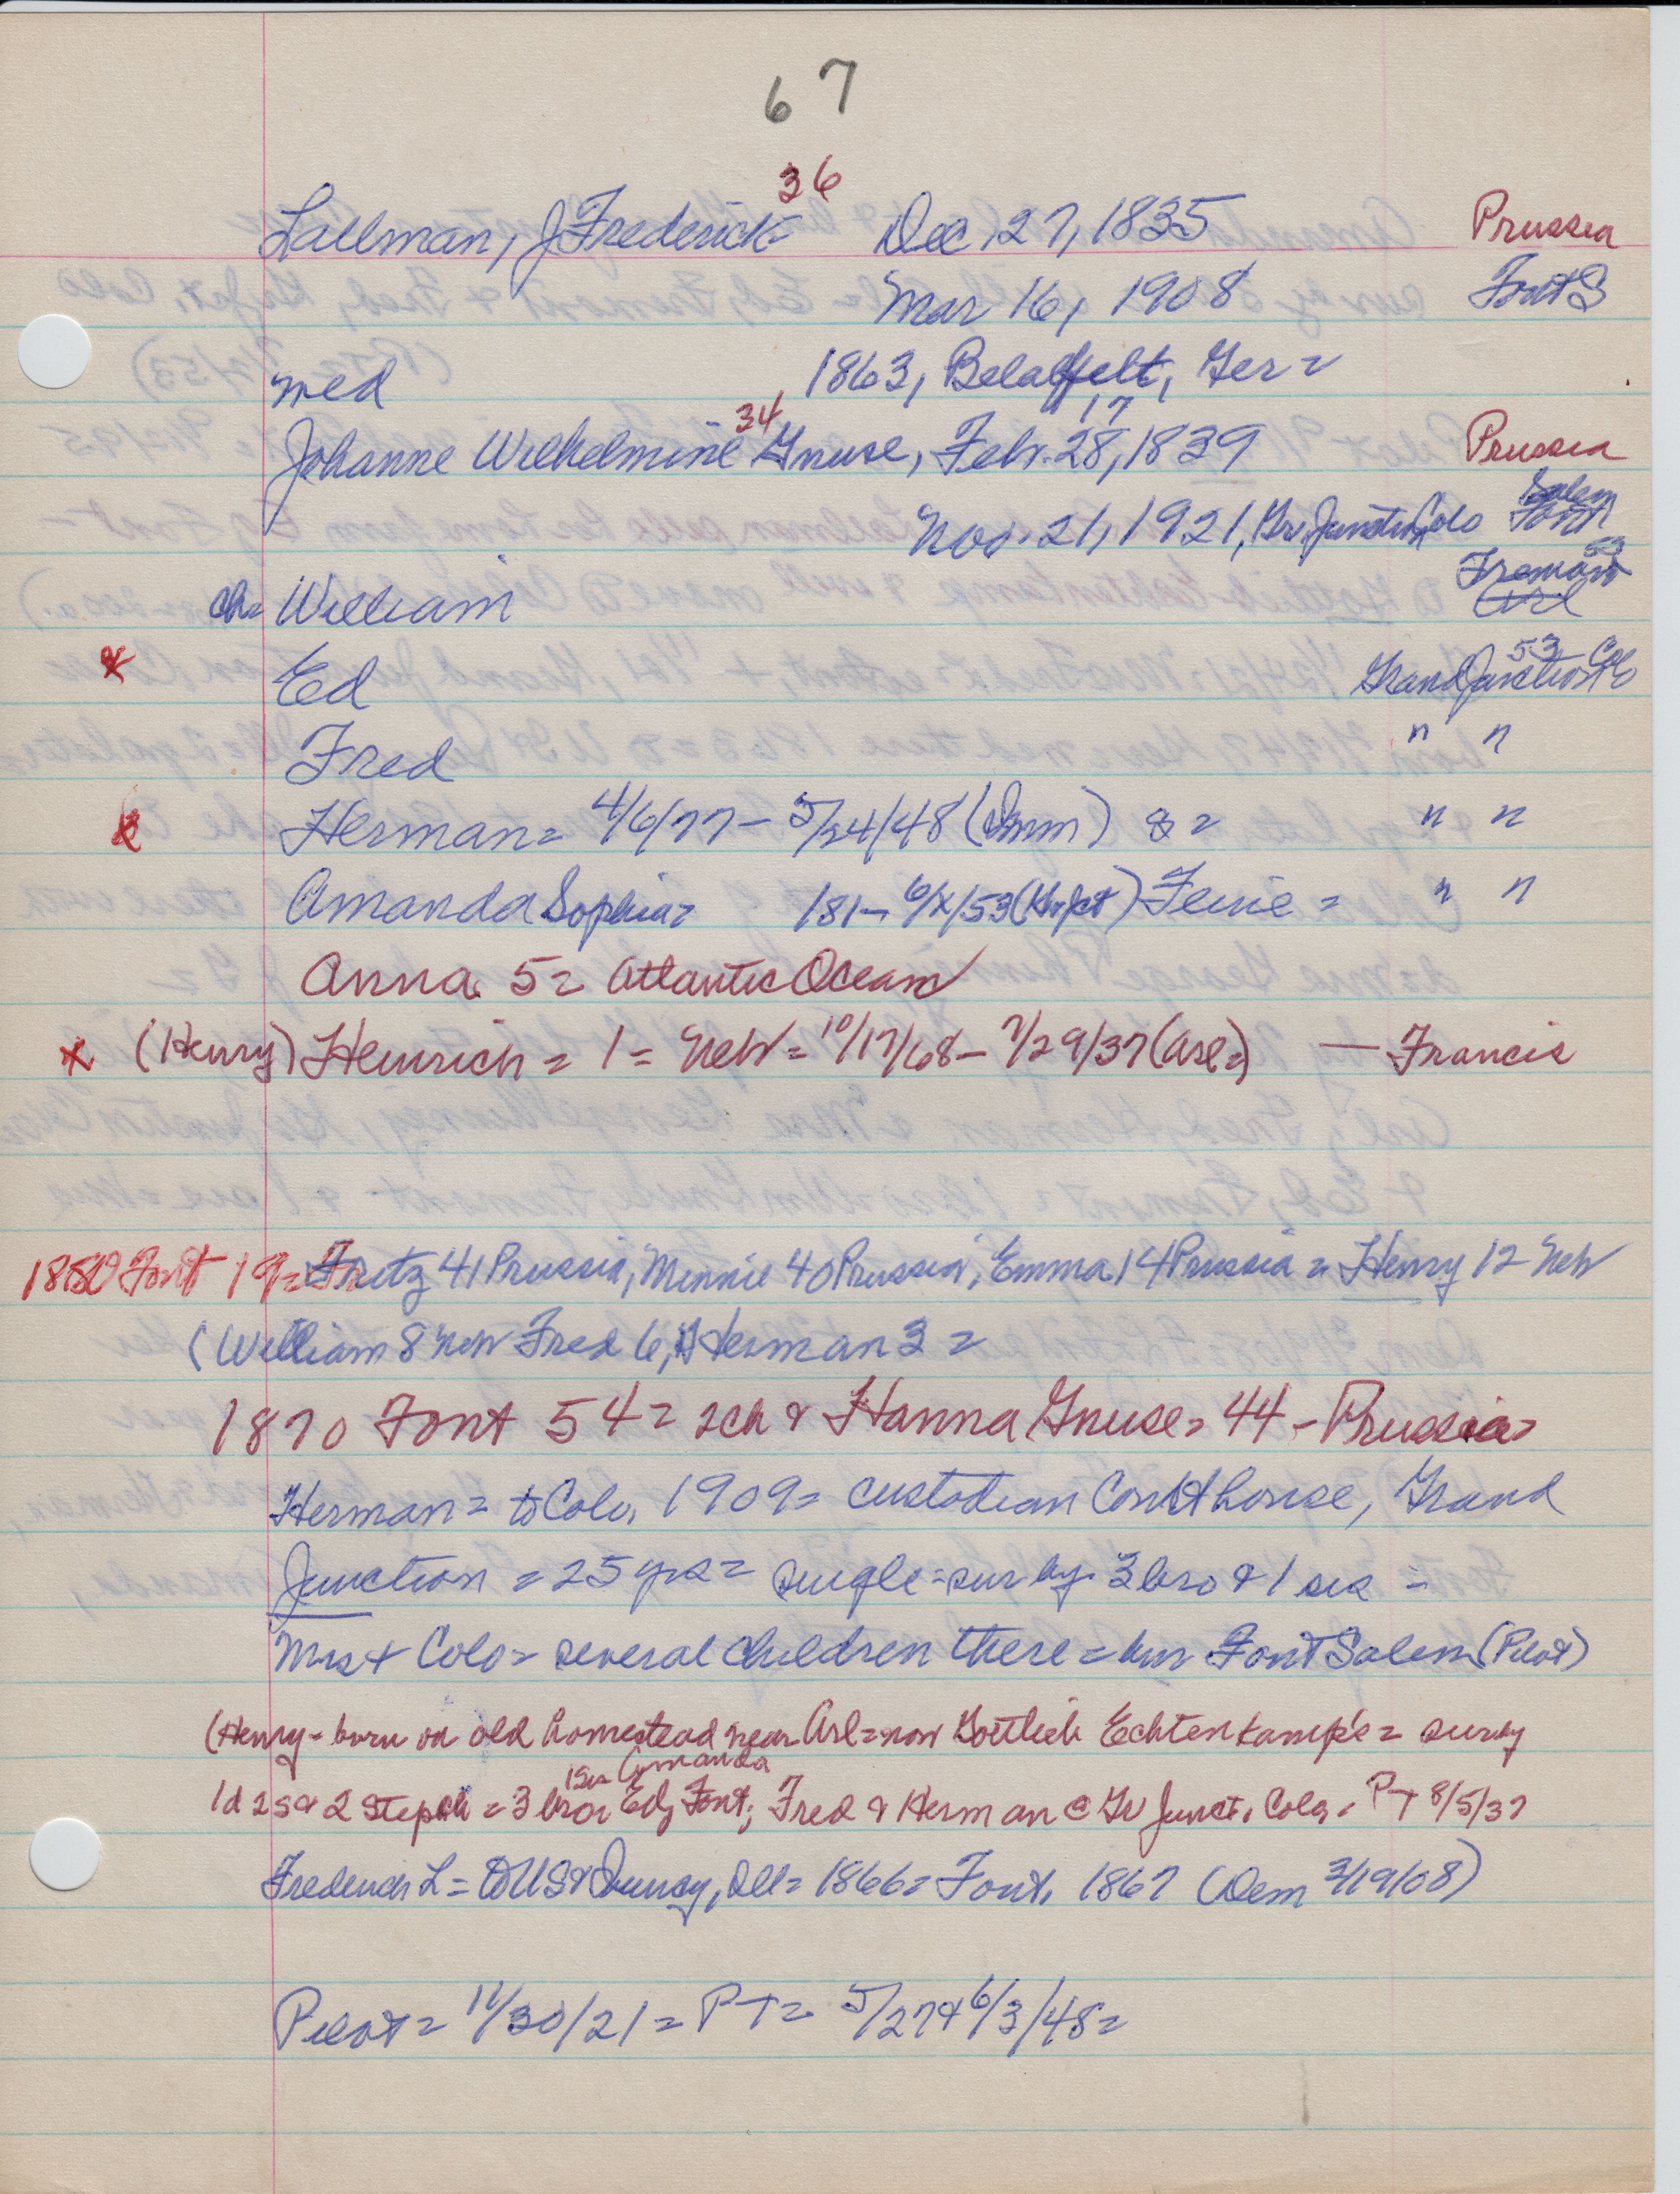 67
36
Lallman, J Frederick = Dec. 27, 1835 Prussia
Mar 16, 1908 Font S
med 1863, Ger =
34 17
Johanne Wilhelmine Gnuse, Febr. 28, 1839 Prussia
Nov. 21, 1921, Gr. Junction Colo Salem Font
53
Fremont
ch = William Arl
53 Colo
x Ed Grand Junction
Fred " "
x Herman = 4/6/77 - 5/24/48 (Imm) s = " "
Amanda Sophia = /81 - 6/x/53 (Gr Jct) = " "
Anna 5 = Atlantic Ocean
x (Henry) Heinrich = 1 = Neb = 10/17/68 - 7/29/37 (Arl =) — Francis
1880 Font 19 = Fritz 41 Prussia, Minnie 40 Prussia, Emma 14 Prussia = Henry 12 Neb
(William 8 Neb Fred 6, Herman 3 =
1870 Font 54 = 2 ch & Hanna Gnuse = 44 - Prussia =
Herman = to Colo. 1909 = custodian Courthouse, Grand
Junction = 25 yrs = single = sur by 3 bro & 1 sis =
Mrs + Colo = several children there = bur Font Salem (Pilot)
(Henry - born on old homestead near Arl = now Gottlieb Echtenkamp's = surby
1 sis Amanda
1d 2s & 2 stepch = 3 bro Ed, Font; Fred & Herman @ Gr Junct. Colo. = PT 8/5/37
Frederick L = to US & Quincy, Ill = 1866 = Font. 1867 (Dem 3/19/08)
Pilot = 11/30/21 = PT = 5/27 & 6/3/48 =